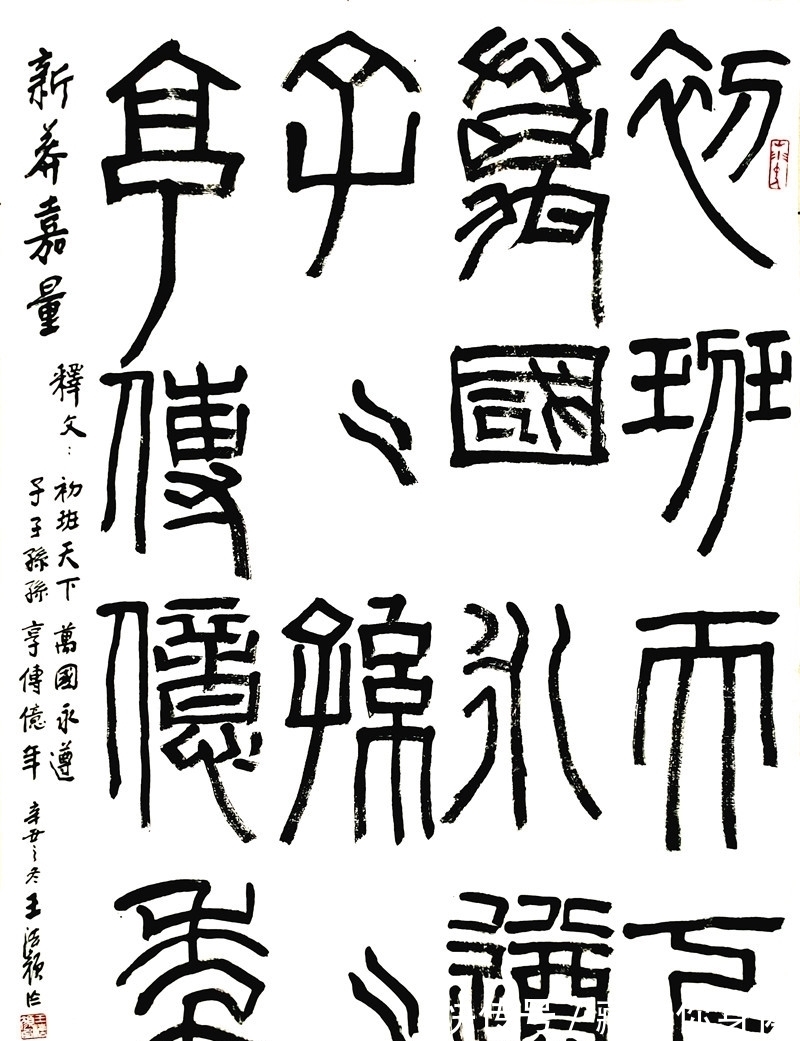 初班天下
萬國永遵
子〻孫〻
享傳億年
新莽嘉量
釋文：
初班天下 萬國永遵
子子孫孫 享傳億年
辛丑之冬 王
快传号 /